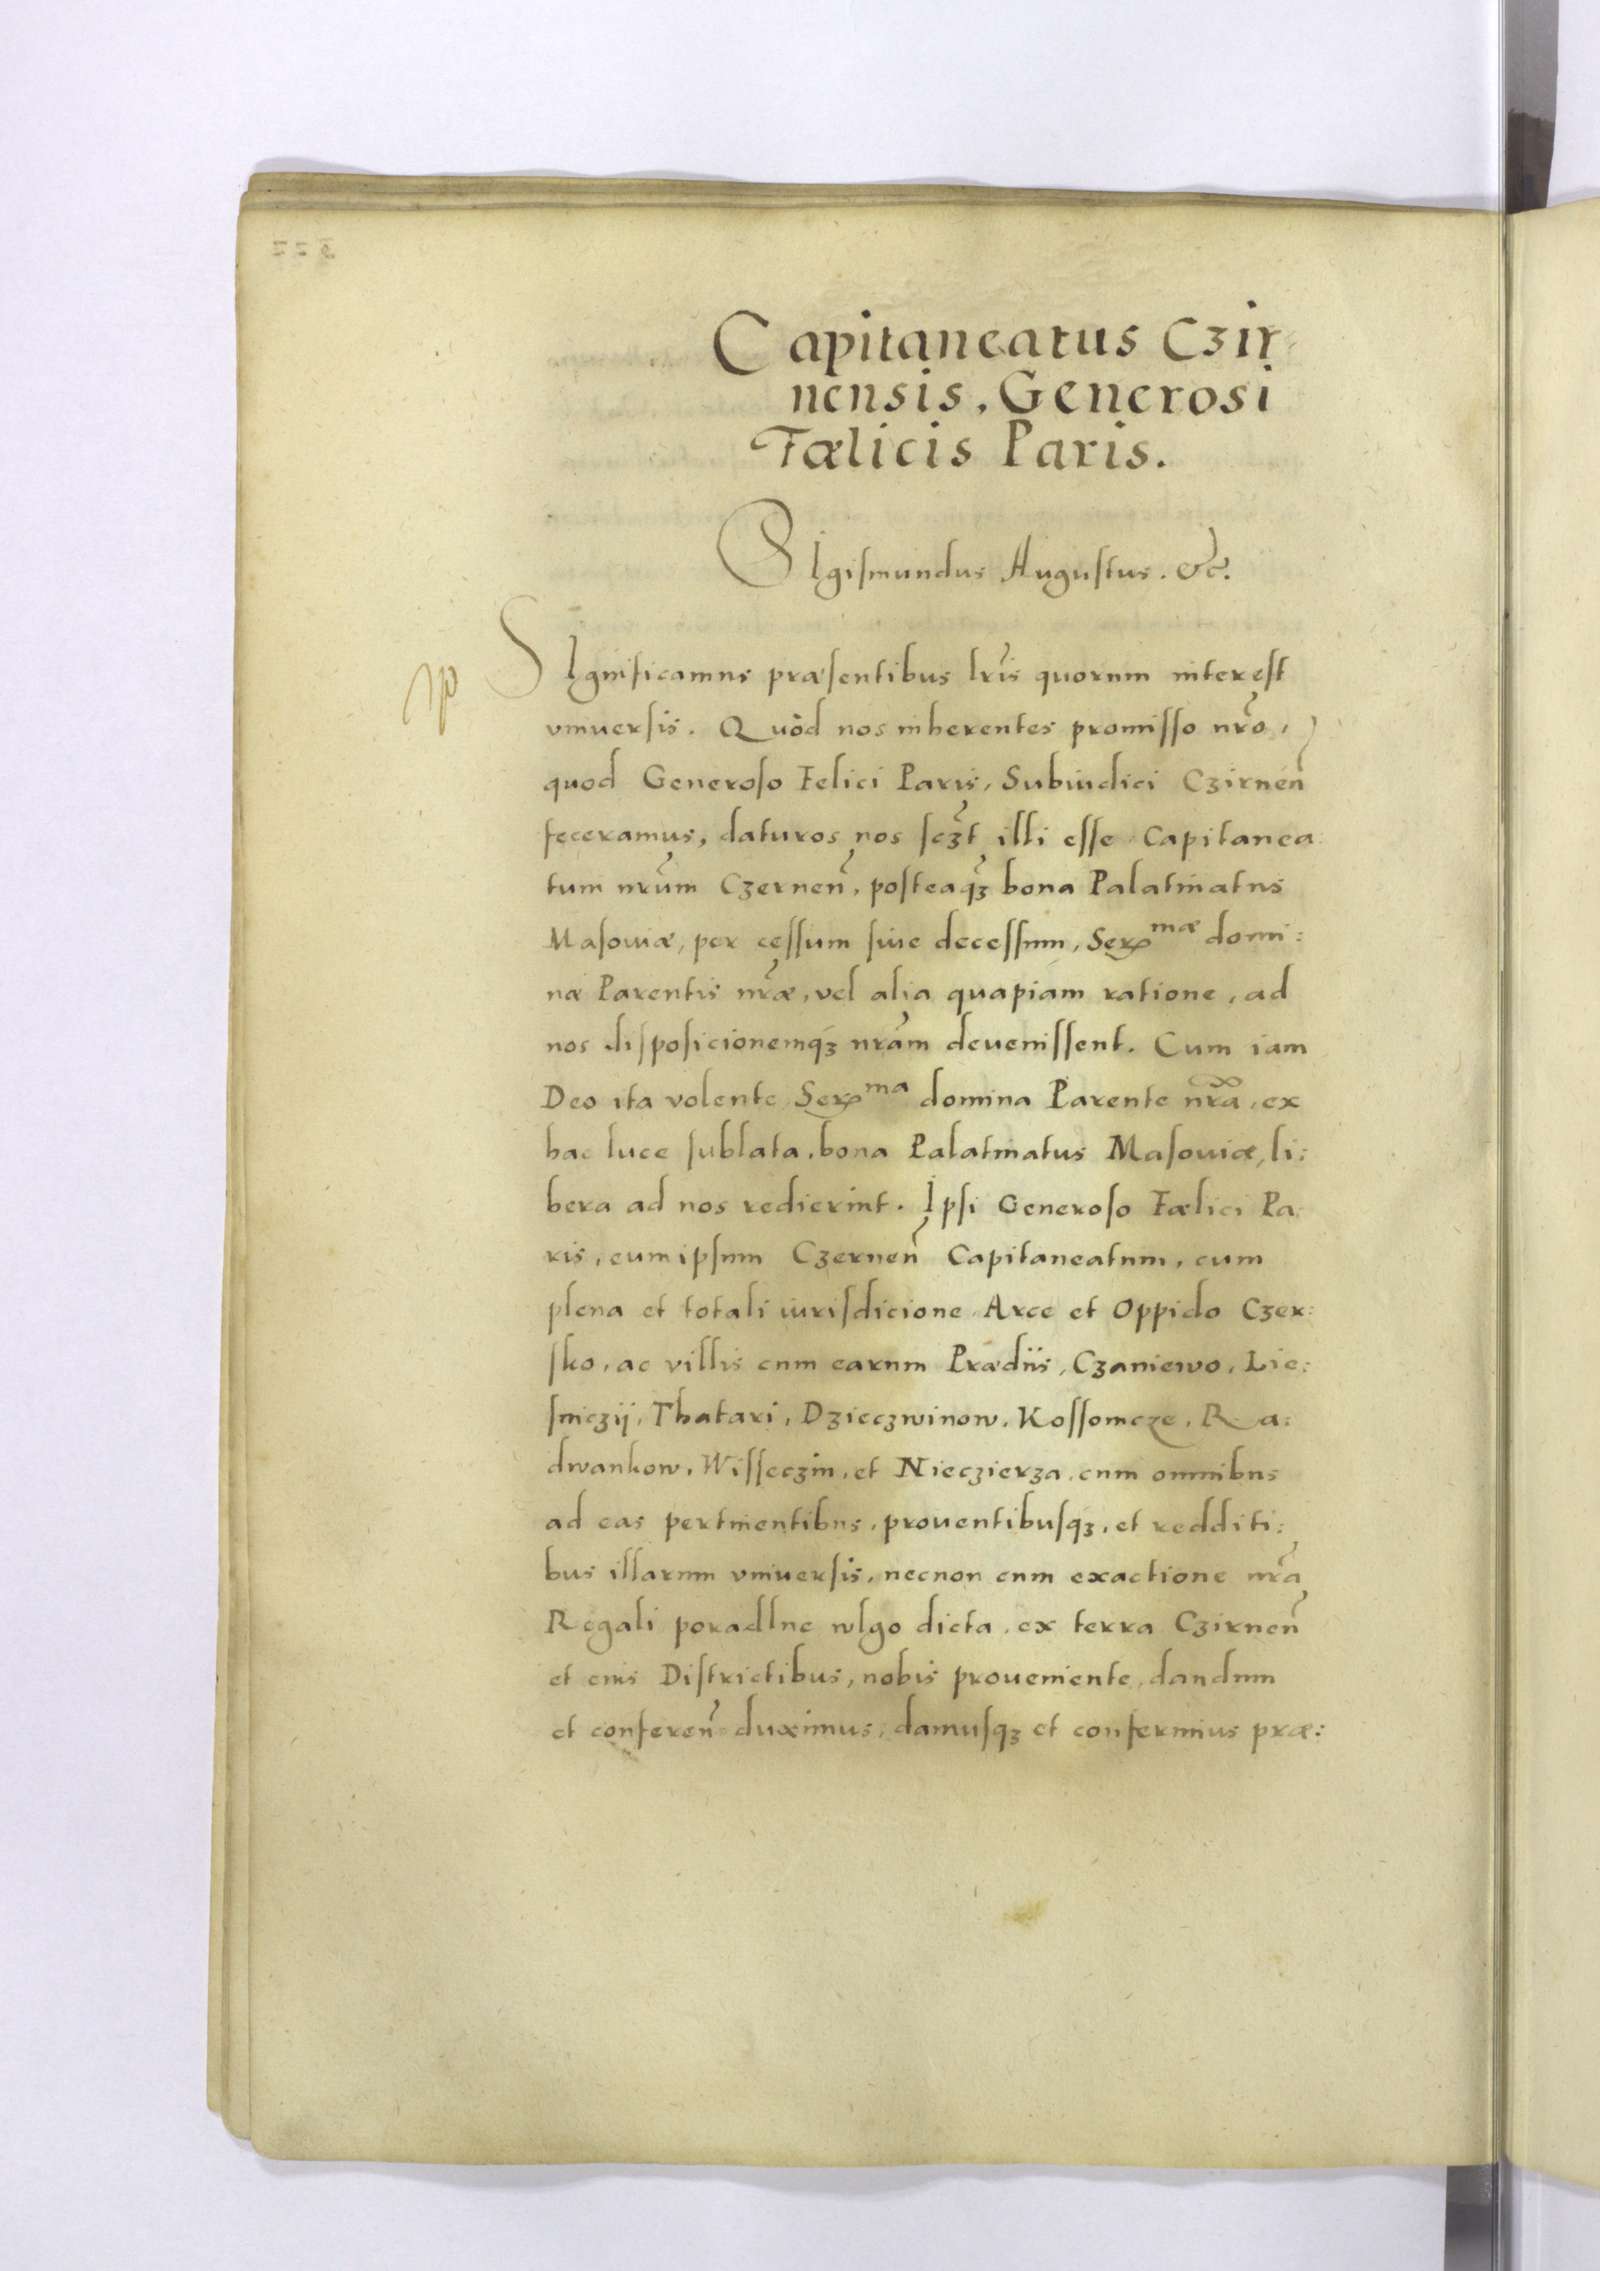 Capitaneatus Czir-
nensis, Generosi
Fælicis Paris.
SIgismundus Augustus. &c.
SIgnificamus præsentibus lr̃is quorum interest
vniuersis. Quòd nos inherentes promisso nr̃o,
quod Generoso Felici Paris, Subiudici Czirneñ
feceramus, daturos nos scʒt illi esse Capitanea:
tum nr̃um Czerneñ, posteaqʒ bona Palatinatus
Masouiæ, per cessum siue decessum, Serꝯmæ domi:
næ Parentis nr̃æ, vel alia quapiam ratione, ad
nos disposicionemqʒ nr̃am deuenissent. Cum iam
Deo ita volente Serꝯma domina Parente nr̃a, ex
hac luce sublata, bona Palatinatus Masouiæ, li:
bera ad nos redierint. Ipsi Generoso Fælici Pa:
ris, eum ipsum Czerneñ Capitaneatum, cum
plena et totali iurisdicione Arce et Oppido Czer:
sko, ac villis cum earum Prædiis, Czaniewo, Lie:
sniczij, Thatari, Dzieczwinow, Kossomcze, Ra:
dwankow, Wisseczin, et Nieczierza, cum omnibus
ad eas pertinentibus, prouentibusqʒ, et redditi:
bus illarum vniuersis, necnon cum exactione nr̃a
Regali poradlne wlgo dicta, ex terra Czirneñ
et eius Districtibus, nobis proueniente, dandum
et confereñ duximus, damusqʒ et conferimus præ: